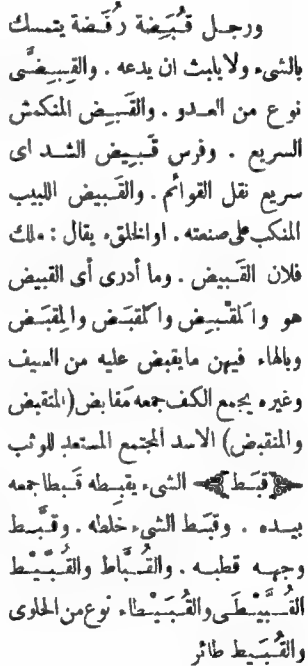 ورجل قُبَضة رُفَضة يتمسك
بالشيء ولا يلبث ان يدعه . والقِبِضَّى
نوع من العدو . والقَبِض المنكمش
السريع . وفرس قَبِيض الشد اى
سريع نقل القوائم . والقَبيض اللبيب
المنكب على صنعته . او الخلق ، يقال : ملك
فلان القَبيض . وما أدرى أى القبيض
هو والمَقْبِض والمَقبَض والمِقبَض
وبالهاء فيهن مايقبض عليه من السيف
وغيره بجمع الكف جمعه مَقابض (المتقبض
والمنقبض) الاسد المجتمع المستعد للوثب
﴿قَبَط﴾ الشيء يقبِطه قَبطا جمعه
بيده . وقبَط الشيء خلطه . وقبَّط
وجهه قطبه . والقُبَّاط والقُبَّيْط
القُبَّيْطَى والقُبَيْطاء نوع من الحلوى
والقُبَيط طائر